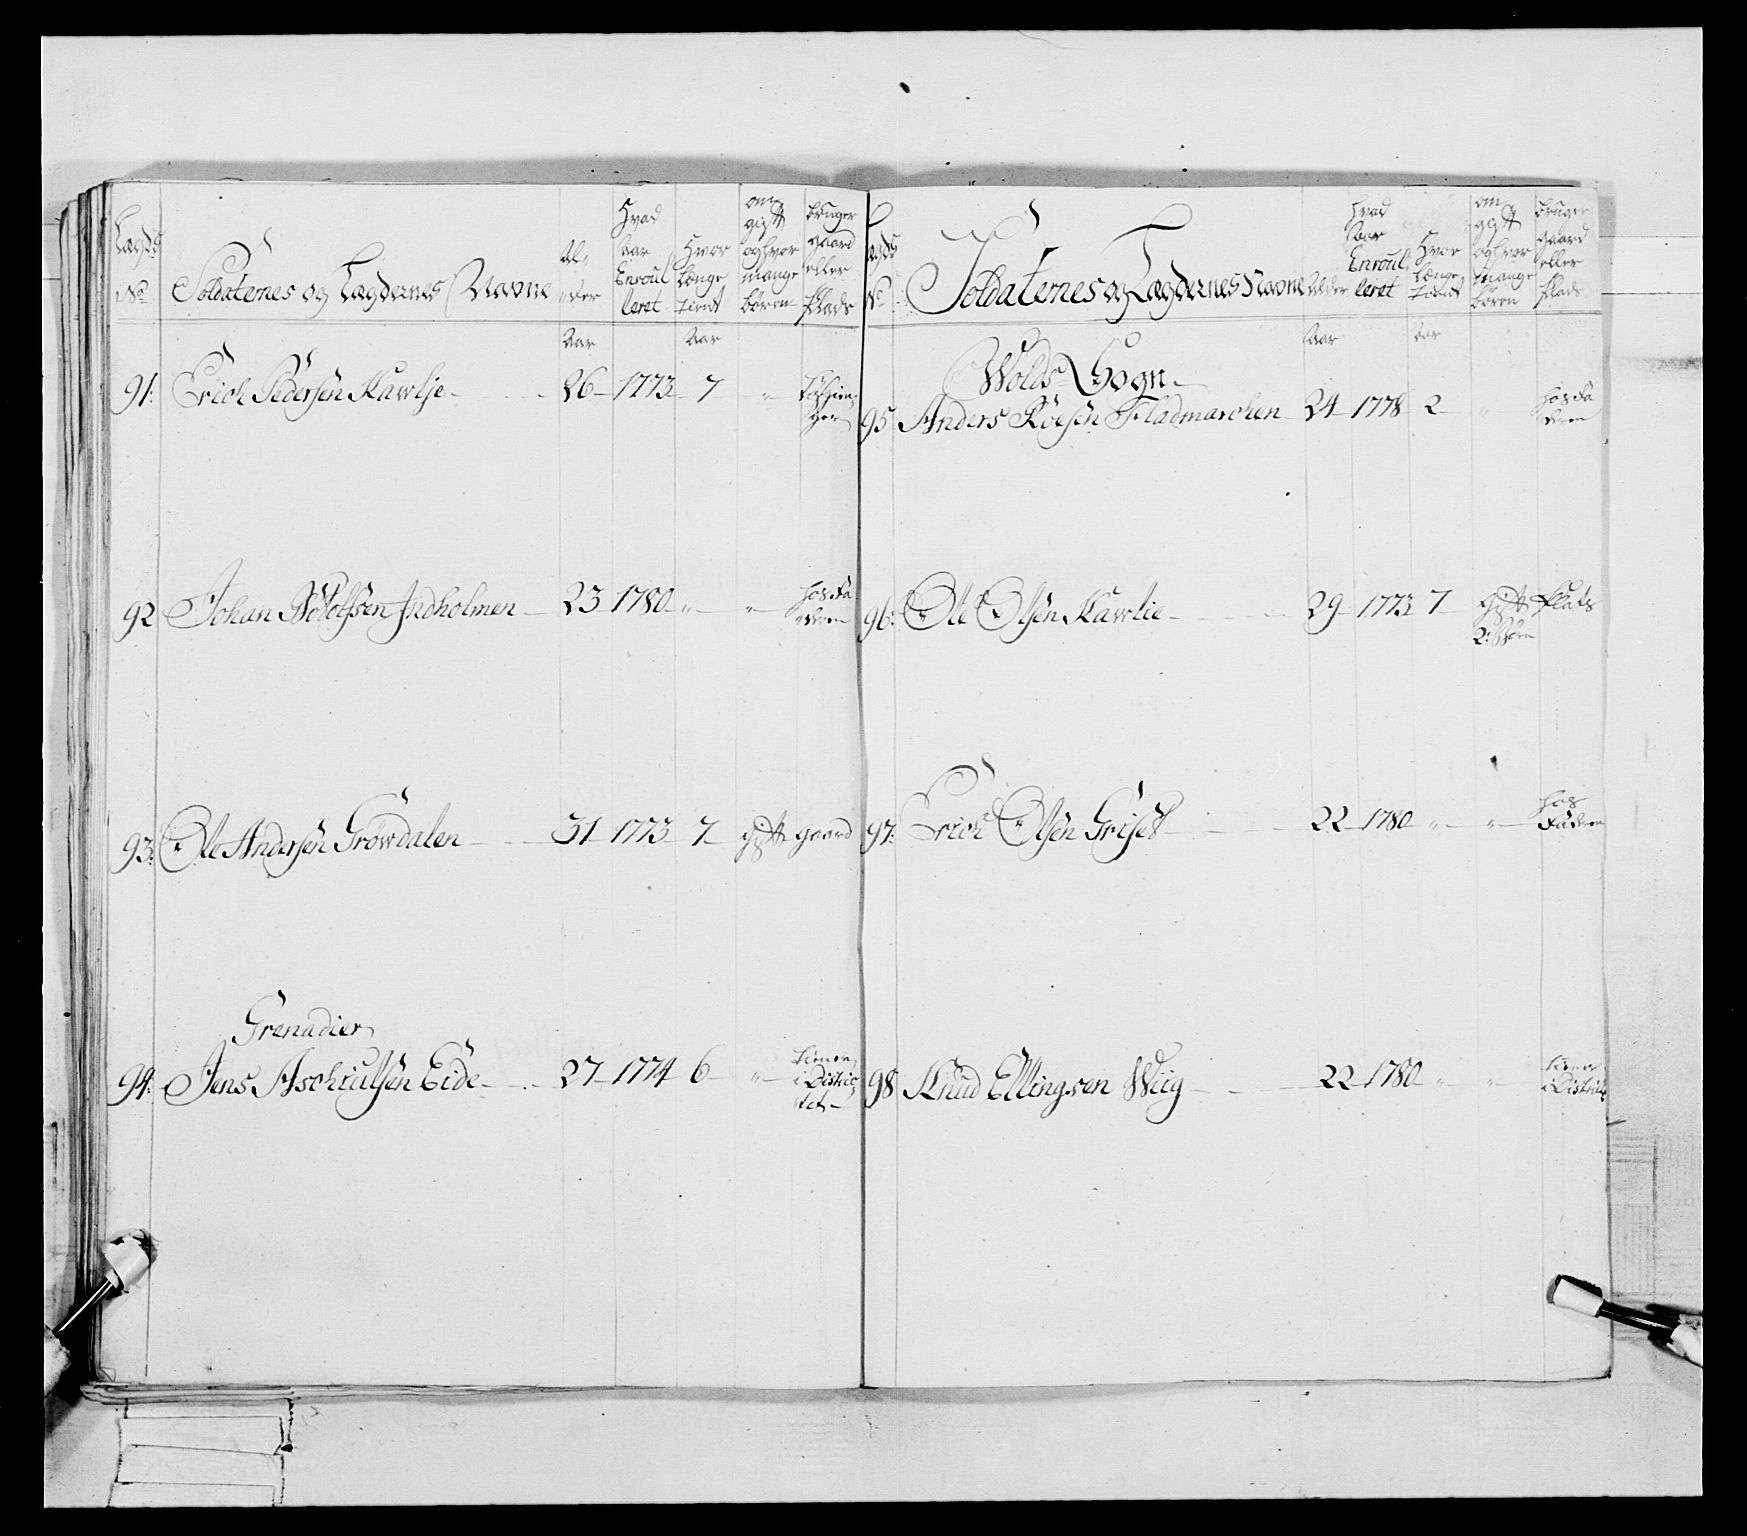 Lægds No
Soldaternes og Lægdernes Navne
Al-
der
Hvad
Aar
Enroul
leret
Hvor
længe
tient
om
gift
og hvor
mange
børen
bruger
gaard
eller
Plads
Aar
Aar
91: Erich Pedersen Kavlie 26 1773 7 "
92 Johan Botolfsen Indholmen 23 1780 " " hos Fa
deren
93: Ole Andersen Grøwdalen 31 1773 7 gift gaard
Grenadier
94: Jens Aschiulsen Eide 27 1774 6 " tiener
i Distric
tet
Lægds No
Soldaternes og Lægdernes Navne
Alder
hvad
Aar
Enroul
leret
Hvor
længe
tient
om
gift
og hvor
mange
børen
bruger
gaard
eller
Plads
Aar
Aar
Wolds Sogn
95 Anders Roesen Fladmarchen 24 1778 2 " hos Fa
deren
96: Ole Olsen Kavlie 29 1773 7 Gift Plads
2: Børn
97: Erich Olsen Griset 22 1780 " " hos
Faderen
98 Knud Ellingsen Wiig 22 1780 " " tiener
i District